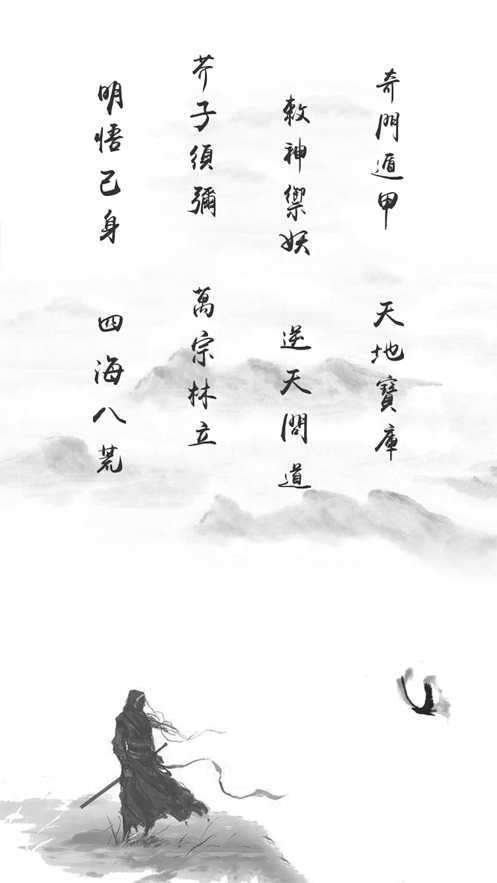 奇門遁甲 天地寶庫
敕神禦妖 逆天問道
芥子須彌 萬宗林立
明悟己身 四海八荒